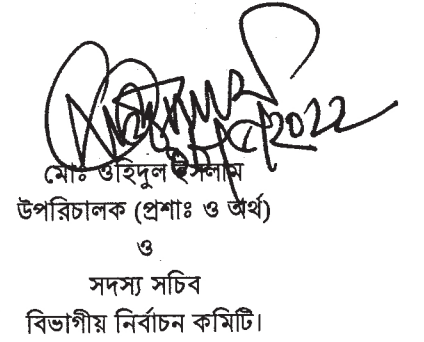 মোঃ ওহিদুল ইসলাম
উপরিচালক (প্রশাঃ ও অর্থ)
ও
সদস্য সচিব
বিভাগীয় নির্বাচন কমিটি।